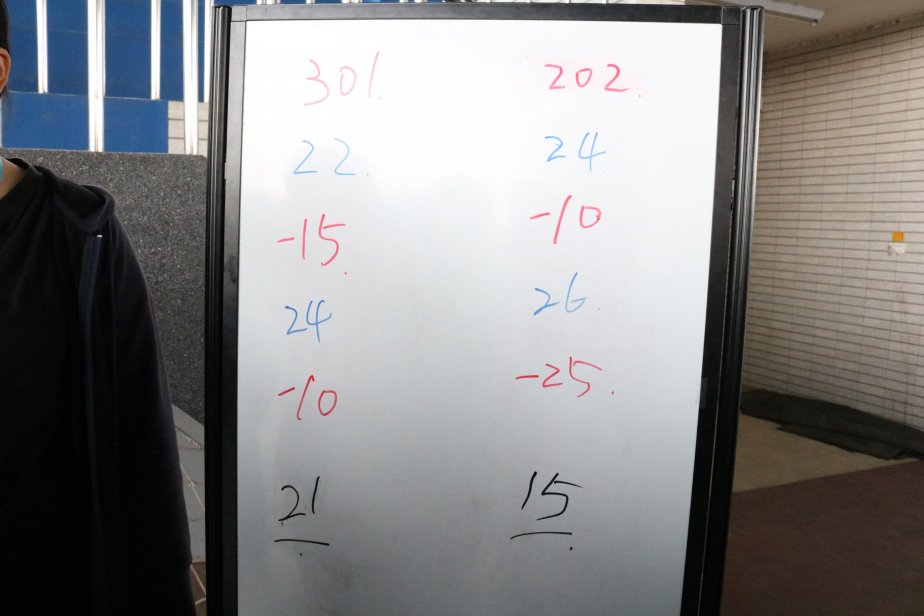 301. 202.
22. 24.
-15. -10
24 26.
-10 -25.
21 15